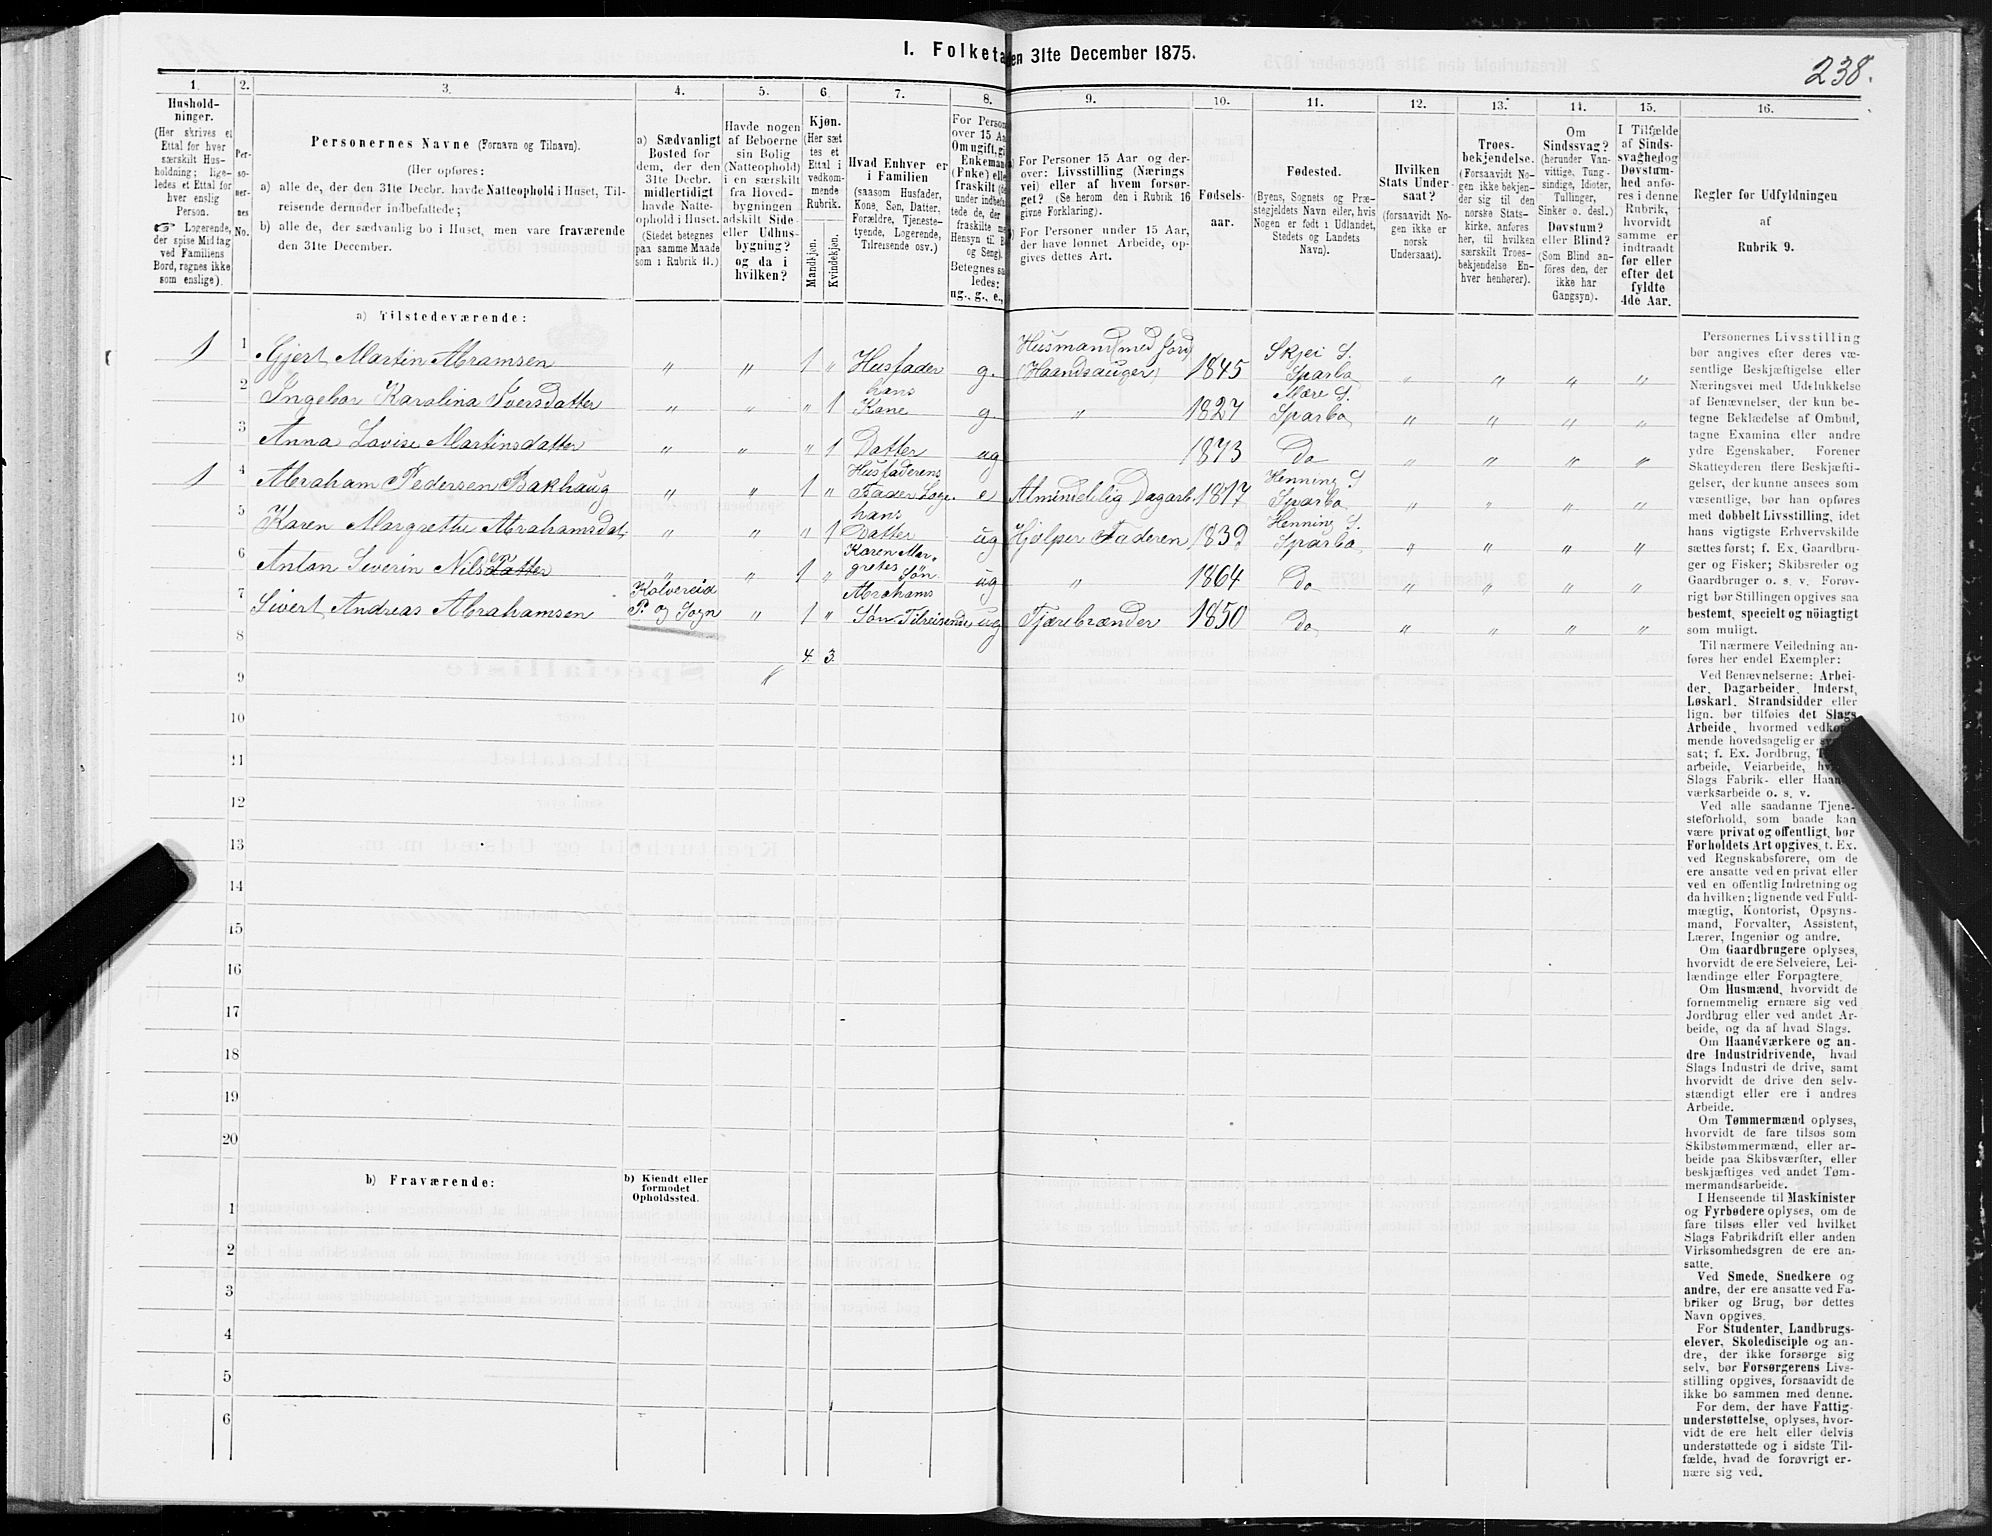 I. Folketa
en 31te December 1875.
238.
1.
Hushold-
ninger.
(Her skrives et
Ettal for hver
særskilt Hus-
holdning; lige-
ledes et Ettal for
hver enslig
Person.
☞ Logerende,
der spise Middag
ved Familiens
Bord, regnes ikke
som enslige).
2.
Per-
so-
ner-
nes
No.
3.
Personernes Navne (Fornavn og Tilnavn).
(Her opføres:
a) alle de, der den 31te Decbr. havde Natteophold i Huset, Til-
reisende derunder indbefattede;
b) alle de, der sædvanlig bo i Huset, men vare fraværende
den 31te December.
4.
a) Sædvanligt
Bosted for
dem, der den
31te Decbr.
midlertidigt
havde Natte-
ophold i Huset.
(Stedet betegnes
paa samme Maade
som i Rubrik 11.)
5.
Havde nogen
af Beboerne
sin Bolig
(Natteophold)
i en særskilt
fra Hoved-
bygningen
adskilt Side-
eller Udhus-
bygning?
og da i
hvilken?
6.
Kjøn.
(Her sæt-
tes et
Ettal i
vedkom-
mende
Rubrik.
Mandkjøn.
Kvindekjøn.
7.
Hvad Enhver er
i Familien
(saasom Husfader,
Kone, Søn, Datter,
Forældre, Tjeneste-
tyende, Logerende,
Tilreisende osv.)
8.
For Person
over 15 Aa
Om ugift, gi
Enkemand
(Enke) elle
fraskilt (de
under indbefat-
tede de, der
fraskilte me
Hensyn til B
og Seng).
Betegnes sa
ledes:
ug., g., e.,
9.
For Personer 15 Aar og der-
over: Livsstilling (Nærings
vei) eller af hvem forsør-
get? (Se herom den i Rubrik 16
givne Forklaring).
For Personer under 15 Aar,
der have lønnet Arbeide, op-
gives dettes Art.
10.
Fødsels-
aar.
11.
Fødested.
(Byens, Sognets og Præ-
stegjeldets Navn eller, hvis
Nogen er født i Udlandet,
Stedets og Landets
Navn).
12.
Hvilken
Stats Under-
saat?
(forsaavidt No-
gen ikke er
norsk
Undersaat).
13.
Troes-
bekjendelse.
(Forsaavidt No-
gen ikke bekjen-
der sig til den
norske Stats-
kirke, anføres
her, til hvilken
særskilt Troes-
bekjendelse En-
hver henhører).
14.
Om
Sindssvag?
(herunder Van-
vittige, Tung-
sindige, Idioter,
Tullinger,
Sinker o. desl.)
Døvstum?
eller Blind?
(Som Blind an-
føres den, der
ikke har
Gangsyn).
15.
I Tilfælde
af Sinds-
svaghed og
Døvstum-
hed anfø-
res i denne
Rubrik,
hvorvidt
samme er
indtraadt
før eller
efter det
fyldte
4de Aar.
16.
Regler for Udfyldningen
af
Rubrik 9.
a) Tilstedeværende:
1 1 Gjert Martin Abramsen " " 1 " Husfader g. Husmand med Jord (Haandsauger) 1845 Skjei S. Sparbo " " " "
2 Ingebor Karolina Iversdatter " " " 1 hans Kone g " 1827 Mære S. Sparbo " " " "
3 Anna Lovise Martinsdatter " " " 1 Datter ug 1873 Do " " " "
1 4 Abraham Pedersen Bakhaug " " 1 " Husfaderens Fader Loge. e Almindelig Dagarb. 1817 Henning S Sparbo " " " "
5 Karen Margrethe Abrahamsdat. " " " 1 hans Datter ug Hjelper Faderen 1839 Henning S. Sparbo " " " "
6 Anton Severin Nilsdatter " " 1 " Karen Mar- gretes Søn ug " 1864 Do " " " "
7 Sivert Andreas Abrahamsen Kolvereid P. og Sogn " 1 " Abrahams Søn Tilreisende ug Tjærebrænder 1850 Do " " " "
8 4 3
9 "
10
11
12
13
14
15
16
17
18
19
20
b) Fraværende:
b) Kjendt eller
formodet
Opholdssted.
1
2
3
4
5
6
Personernes Livsstilling
bør angives efter deres væ-
sentlige Beskjæftigelse eller
Næringsvei med Udelukkelse
af Benævnelser, der kun be-
tegne Beklædelse af Ombud,
tagne Examina eller andre
ydre Egenskaber. Forener
Skatteyderen flere Beskjæfti-
gelser, der kunne ansees som
væsentlige, bør han opføres
med dobbelt Livsstilling, idet
hans vigtigste Erhvervskilde
sættes først; f. Ex. Gaardbru-
ger og Fisker; Skibsreder og
Gaardbruger o. s. v. Forøv-
rigt bør Stillingen opgives saa
bestemt, specielt og nøiagtigt
som muligt.
Til nærmere Veiledning an-
føres her endel Exempler:
Ved Benævnelserne: Arbei-
der, Dagarbeider, Inderst,
Løskarl, Strandsidder eller
lign. bør tilføies det Slags
Arbeide, hvormed vedkom-
mende hovedsagelig er
sat; f. Ex. Jordbrug,
arbeide, Veiarbeide,
Slags Fabrik- eller Haand-
værksarbeide o. s. v.
Ved alle saadanne Tjene-
steforhold, som baade kan
være privat og offentligt, bør
Forholdets Art opgives, t. Ex.
ved Regnskabsførere, om de
ere ansatte ved en privat eller
ved en offentlig Indretning og
da hvilken; lignende ved Fuld-
mægtig, Kontorist, Opsyns-
mand, Forvalter, Assistent,
Lærer, Ingeniør og andre.
Om Gaardbrugere oplyses,
hvorvidt de ere Selveiere, Lei-
lændinge eller Forpagtere.
Om Husmænd, hvorvidt de
fornemmelig ernære sig ved
Jordbrug eller ved andet Ar-
beide, og da af hvad Slags.
Om Haandværkere og an-
dre Industridrivende, hvad
Slags Industri de drive, samt
hvorvidt de drive den selv-
stændigt eller ere i andres
Arbeide.
Om Tømmermænd oplyses,
hvorvidt de fare tilsøs som
Skibstømmermænd, eller ar-
beide paa Skibsværfter, eller
beskjæftiges ved andet Tøm-
mermandsarbeide.
I Henseende til Maskinister
og Fyrbødere oplyses, om de
fare tilsøs eller ved hvilket
Slags Fabrikdrift eller anden
Virksomhedsgren de ere an-
satte.
Ved Smede, Snedkere og
andre, der ere ansatte ved Fa-
briker og Brug, bør dettes
Navn opgives.
For Studenter, Landbrugs-
elever, Skoledisciple og an-
dre, der ikke forsørge sig
selv, bør Forsørgerens Livs-
stilling opgives, forsaavidt de
ikke bo sammen med denne.
For dem, der have Fattig-
understøttelse, oplyses, hvor-
vidt de ere helt eller delvis
understøttede og i sidste Til-
fælde, hvad de forøvrigt er-
nære sig ved.